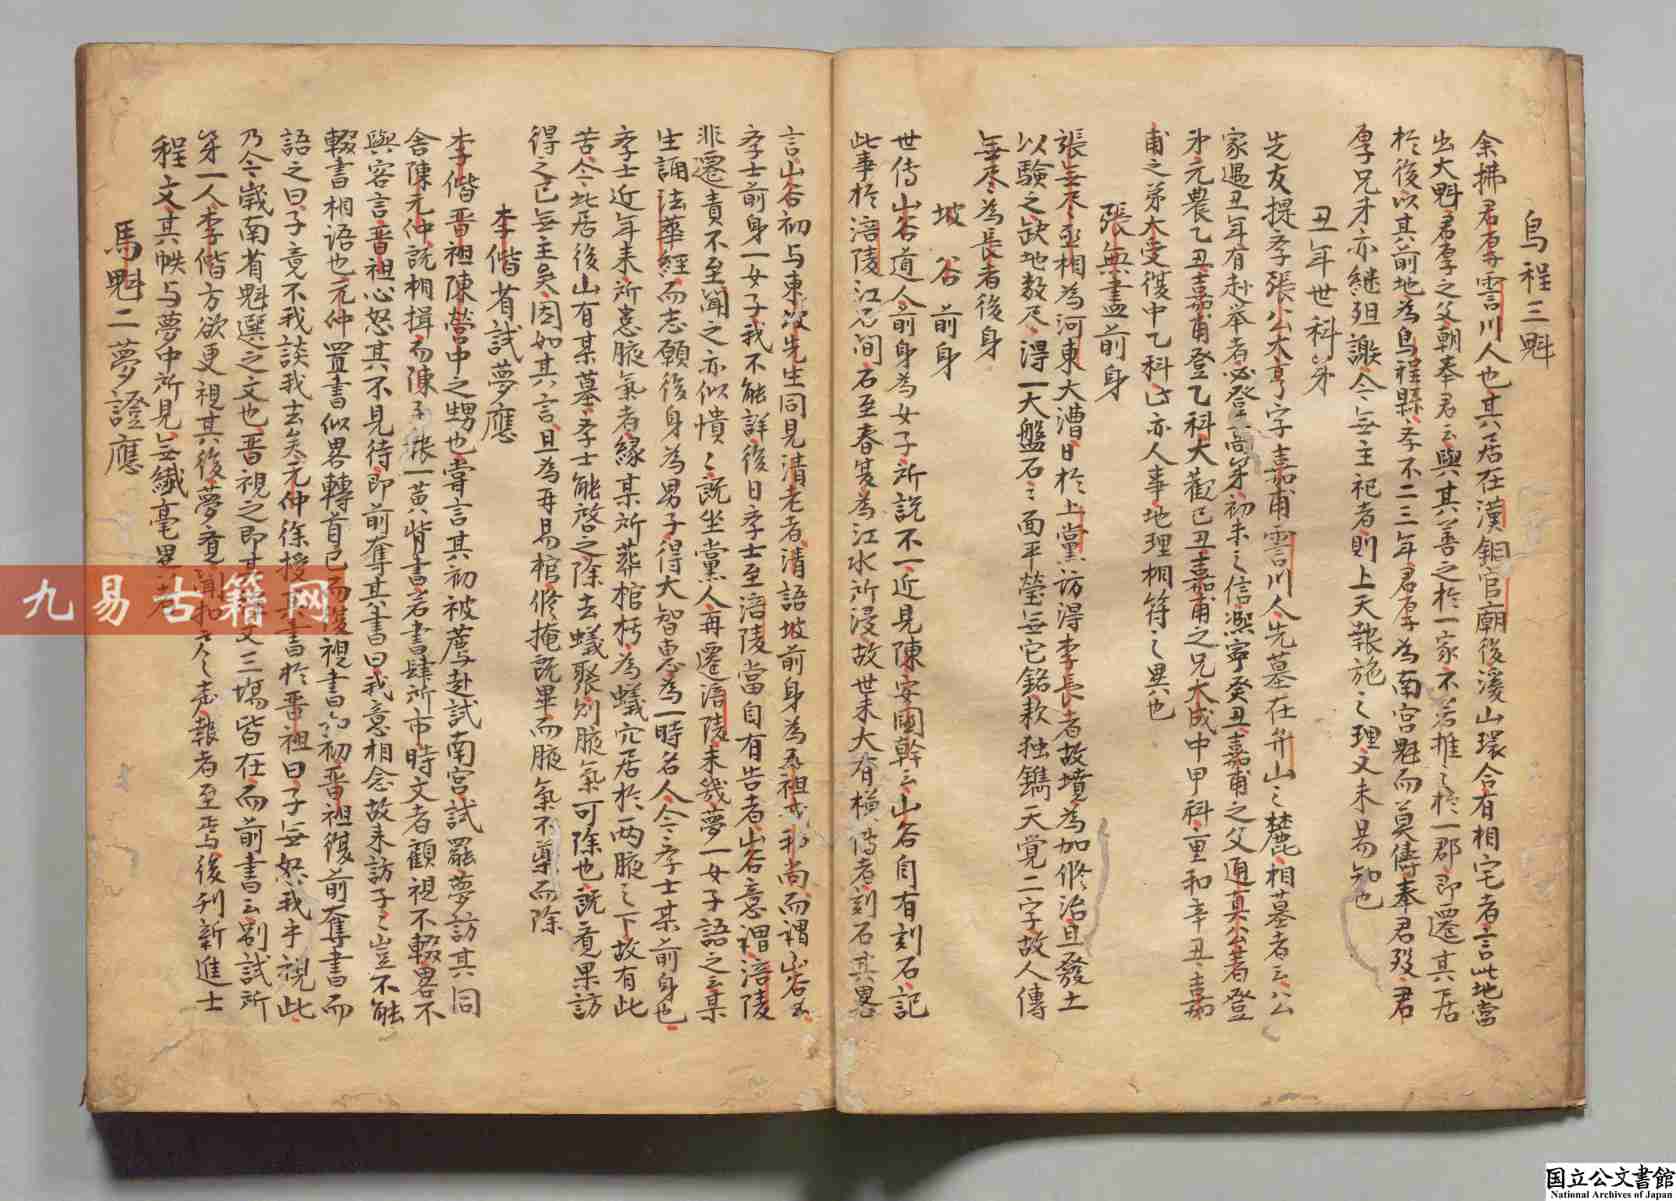 烏程三魁
余拂君厚霅川人也其居在漢銅官廟後溪山環合有相宅者言此地當
出大魁君厚之父朝奉君云與其善之於一家不若推之於一郡即遷其居
於後以其前地為烏程縣學不二三年君厚為南宮魁而莫儔
奉君歿君
厚兄才亦繼殂謝今無主祀者則上天報施之理又未易知也
丑年世科第
先友提學張公大亨字嘉甫霅川人先墓在弁山之麓相墓者云公
家遇丑年有赴舉者必登高第初未之信熙寧癸丑嘉甫之父通真公著登
第元豊乙丑嘉甫登乙科大觀己丑嘉甫之兄大成中甲科重和辛丑嘉
甫之弟大受復中乙科此亦人事地理相符之異也
張無盡前身
張無尽丞相為河東大漕日於上黨訪得李長者故墳為加修治且發土
以驗之掘地数尺得一大盤石之面平瑩無它銘款独鐫天覚二字故人傳
無尽為長者後身
坡谷前身
世傳山谷道人前身為女子所説不一近見陳安國幹云山谷自有刻石記
此事於涪陵江石間石至春夏為江水所浸故世未大有模傳者刻石其畧
言山谷初与東坡先生同見清老者清語坡前身為五祖戒和尚而謂山谷云
學士前身一女子我不能詳後日學士至涪陵當自有告者山谷意謂涪陵
非遷責不至聞之亦似憒之既坐黨人再遷涪陵未幾夢一女子語之云某
生誦法華經而志願後身為男子得大智恵為一時名人今學士某前身也
學士近年来所患腋氣者緣某所葬棺朽為蟻穴居於兩腋之下故有此
苦今此居後山有某墓學士能啓之除去蟻聚則腋氣可除也既覚果訪
得之已無主矣因如其言且為再易棺修掩既畢而腋氣不藥而除
李偕省試夢應
李偕晋祖陳瑩中之甥也嘗言其初被薦赴試南宮試罷夢訪其同
舍陳元仲既相揖而陳手執一黄背書若書肆所市時文者顧視不輟畧不
與客言晋祖心怒其不見待即前奪其書曰我意相念故来訪子之豈不能
輟書相語也元仲置書似畧轉首已而復視書如初晋祖復前奪書而
語之曰子竟不我談我去矣元仲徐授其書於晋祖曰子無怒我乎視此
乃今歳南省魁選之文也晋祖視之即其程文三場皆在而前書云別試所
第一人李偕方欲更視其後夢覚聞扣戸之声報者至焉後刊新進士
程文其帙与夢中所見無纎毫異者
馬魁二夢證應
九易古籍网
国立公文書館
National Archives of Japan